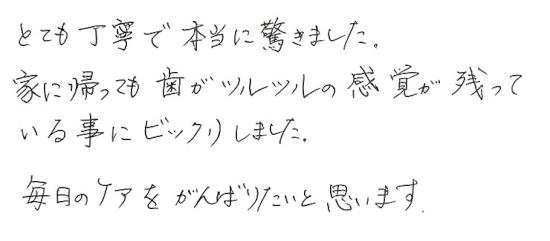 とても丁寧で本当に驚きました。
家に帰っても歯がツルツルの感覚が残って
いる事にビックリしました.
毎日のケアをがんばりたいと思います.